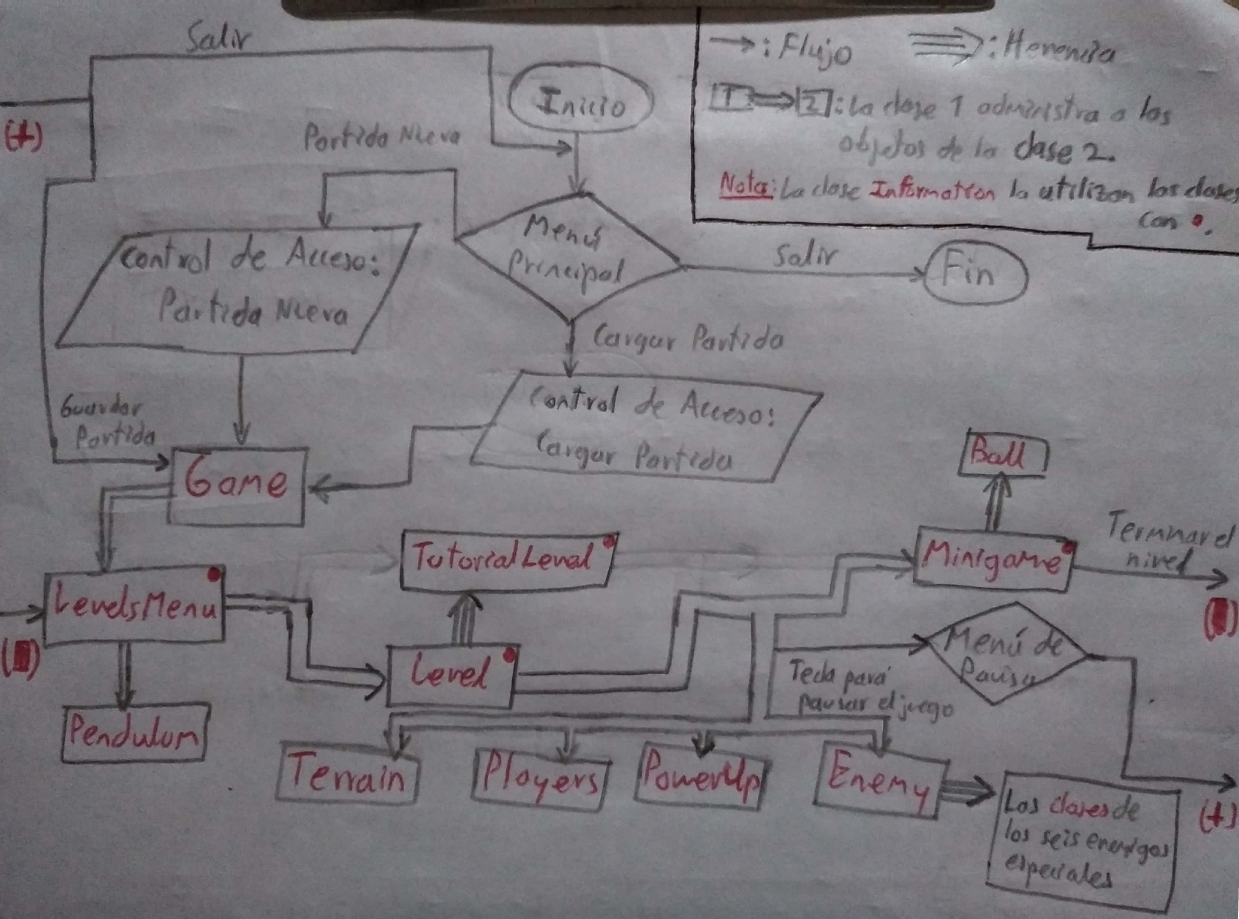 Salir
→: Flujo
⇛: Herencia
1 ⇒ 2: La clase 1 administra a los
objetos de la clase 2.
Nota: La clase Information la utilizan las clases
con •.
(+)
Inicio
Partida Nueva
Menú
Principal
Salir
Fin
Control de Acceso:
Partida Nueva
Cargar Partida
Control de Acceso:
Cargar Partida
Guardar
Partida
Game
Ball
TutorialLevel
Minigame
Terminar el
nivel
LevelsMenu
Level
Menú de
Pausa
Tecla para
pausar el juego
Pendulum
Terrain
Players
PowerUp
Enemy
Las clases de
los seis enemigos
especiales
(+)